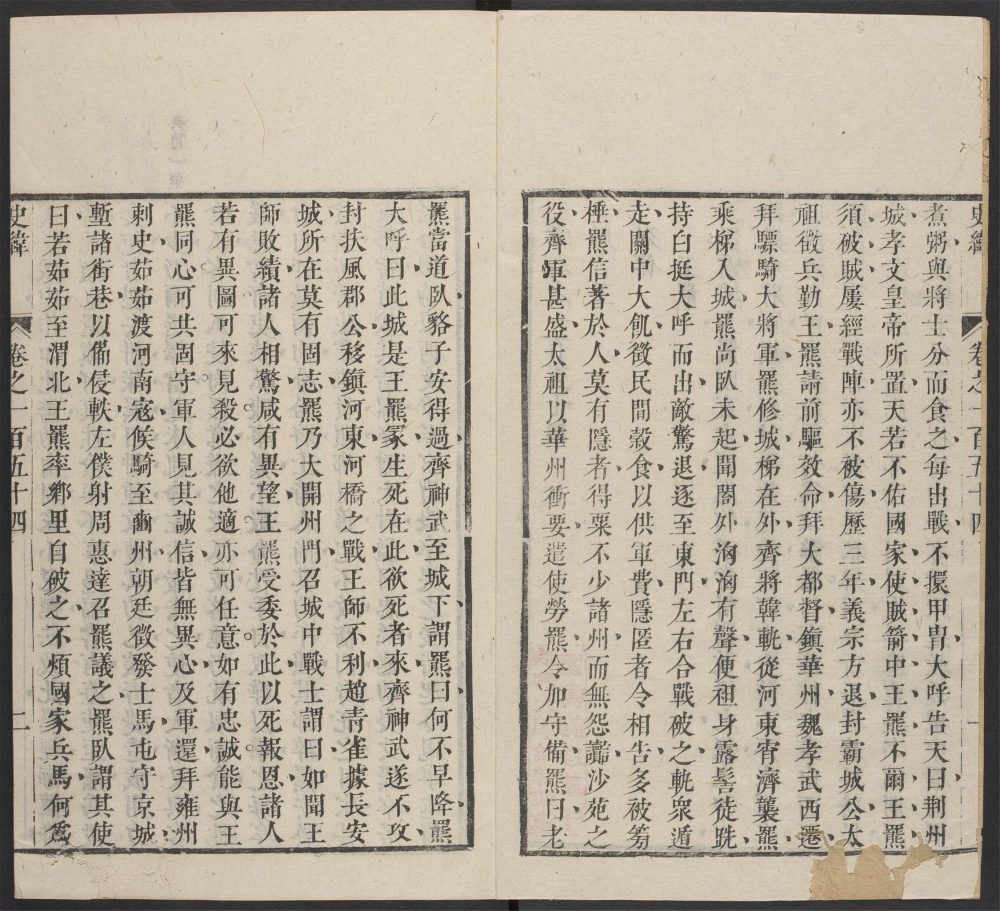 史緯 卷之一百五十四 一
煮粥與將士分而食之每出戰不擐甲冑大呼告天曰荆州
城孝文皇帝所置天若不佑國家使賊箭中王羆不爾王羆
須破賊屢經戰陣亦不被傷歷三年義宗方退封霸城公太
祖徵兵勤王羆請前驅效命拜大都督鎮華州魏孝武西遷
拜驃騎大將軍羆修城梯在外齊將韓軌從河東宵濟襲羆
乘梯入城羆尚臥未起聞閤外洶洶有聲便袒身露髻徒跣
持白挺大呼而出敵驚退逐至東門左右合戰破之軌衆遁
走關中大飢徵民間穀食以供軍費隱匿者令相告多被篣
棰羆信著於人莫有隱者得粟不少諸州而無怨讟沙苑之
役齊軍甚盛太祖以華州衝要遣使勞羆令加守備羆曰老
羆當道臥貉子安得過齊神武至城下謂羆曰何不早降羆
大呼曰此城是王羆冢生死在此欲死者來齊神武遂不攻
封扶風郡公移鎮河東河橋之戰王師不利趙青雀據長安
城所在莫有固志羆乃大開州門召城中戰士謂曰如聞王
師敗績諸人相驚咸有異望王羆受委於此以死報恩諸人
若有異圖可來見殺必欲他適亦可任意如有忠誠能與王
羆同心可共固守軍人見其誠信皆無異心及軍還拜雍州
刺史茹茹渡河南寇候騎至豳州朝廷徵發士馬屯守京城
塹諸街巷以備侵軼左僕射周惠達召羆議之羆臥謂其使
曰若茹茹至渭北王羆率鄉里自破之不煩國家兵馬何爲
史緯 卷之一百五十四 二